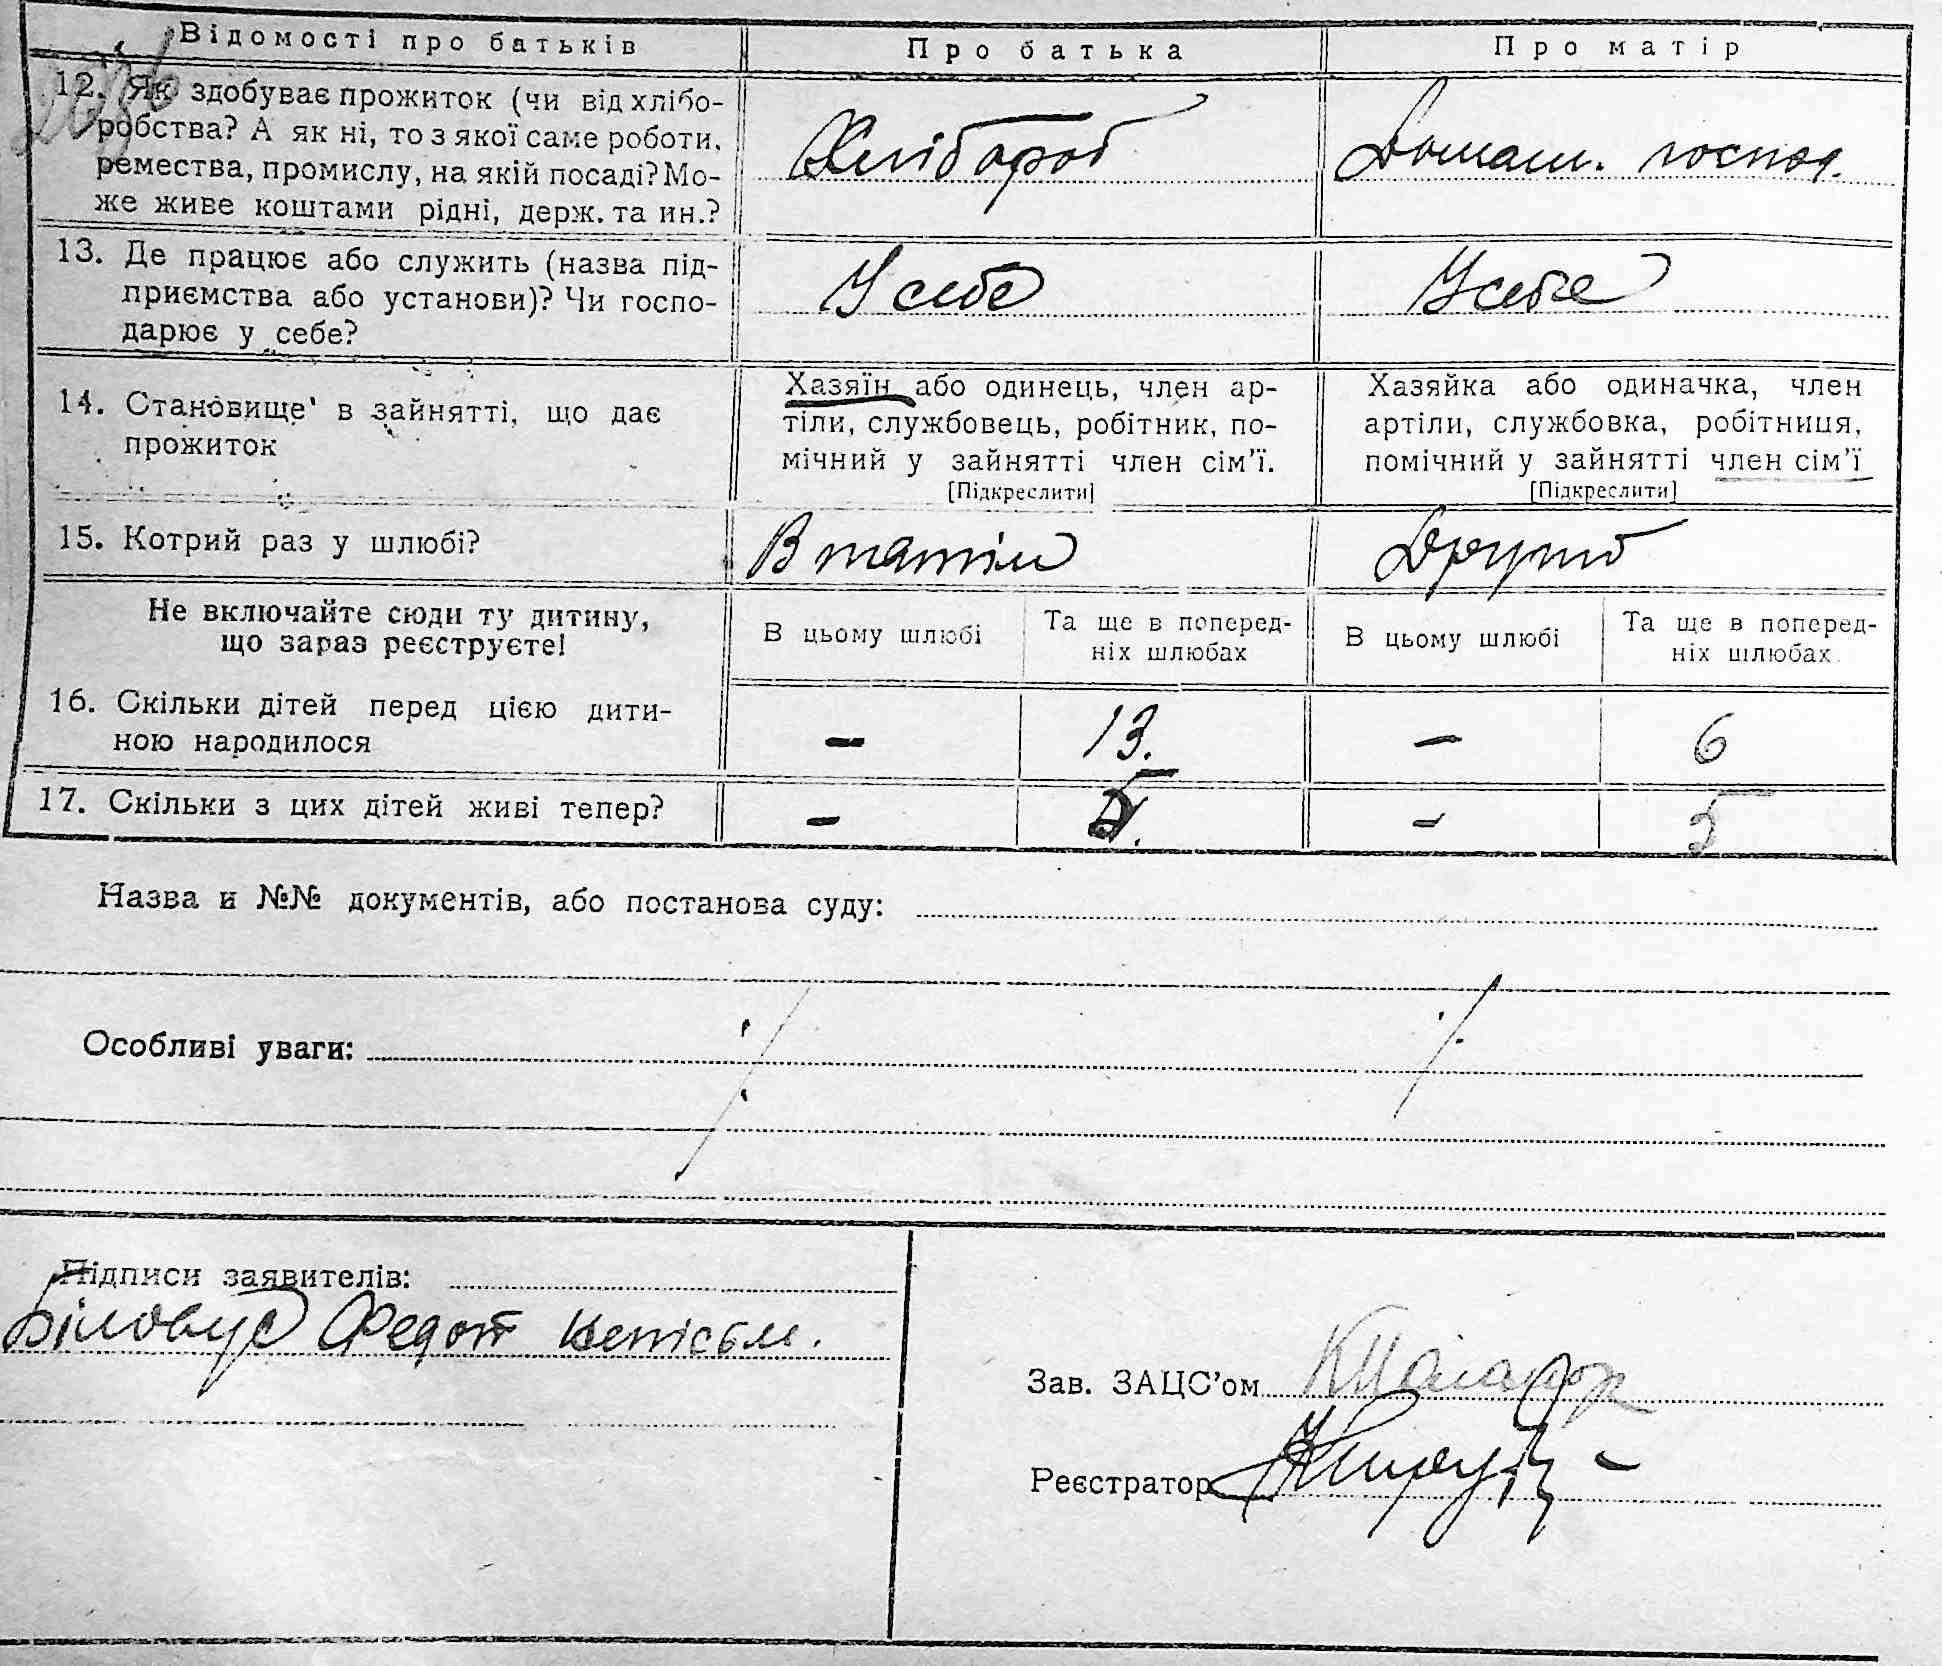 Відомості про батьків
Про батька
Про матір
12. Як здобуває прожиток (чи від хлібо-
робства? А як ні, то з якої саме роботи,
ремества, промислу, на якій посаді? Мо-
же живе коштами рідні, держ. та ин.?
Хлібороб
Домаш. господ.
13. Де працює або служить (назва під-
приємства або установи)? Чи госпо-
дарює у себе?
У себе
У себе
14. Становище в зайнятті, що дає
прожиток
Хазяїн або одинець, член ар-
тіли, службовець, робітник, по-
мічний у зайнятті член сім'ї.
[Підкреслити]
Хазяйка або одиначка, член
артіли, службовка, робітниця,
помічний у зайнятті член сім'ї
[Підкреслити]
15. Котрий раз у шлюбі?
Не включайте сюди ту дитину,
що зараз реєструєте!
В цьому шлюбі
Та ще в поперед-
ніх шлюбах
В цьому шлюбі
Та ще в поперед-
ніх шлюбах.
16. Скільки дітей перед цією дити-
ною народилося
–
13.
–
6
17. Скільки з цих дітей живі тепер?
–
–
5
Назва и №№ документів, або постанова суду:
Особливі уваги:
Підписи заявителів:
Біловус Федот неписьм.
Зав. ЗАЦС'ом
Реєстратор